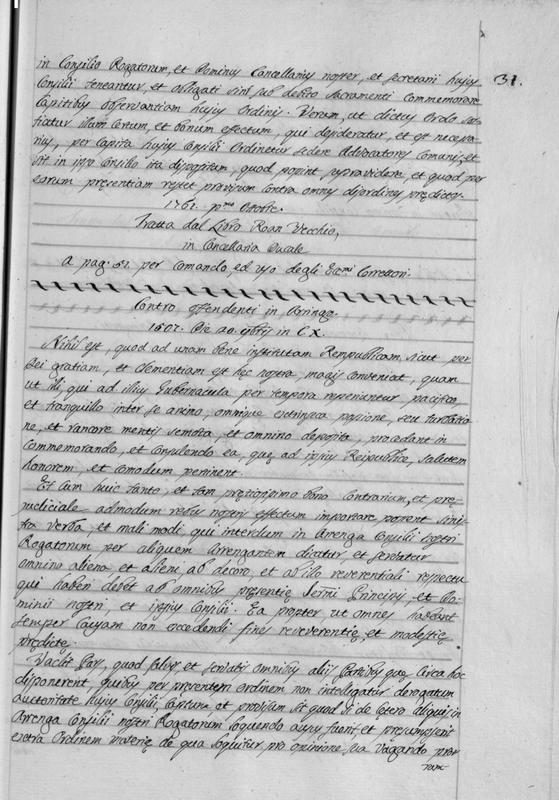 31.
in Consilio Rogatorum, et Dominus Cancellarius noster, et secretarii hujus
Consilii teneantur, et obligati sint sub debito sacramenti commemorare
Capitibus observantiam hujus ordinis. Verum, ut dictus Ordo
sortiatur illum certum, et bonum effectum, qui desideratur, et est necessa-
rius, per Capita hujus Consilii Ordinetur sedere Advocatores Comunis, et
sit in ipso Consilio ita dispositum, quod possint providere, et quod per
eorum presentiam reset provisum contra omnes disordines predictos.
1761. pmo Ottobre.
Tratta dal Libro Roan Vecchio,
in Cancellaria Ducale
a pag. 51. per comando, ed uso degli Eccmi Correttori.
Contro offendenti in Arringo.
1507. Die 20. in C X.
Nihil est, quod ad unam bene institutam Rempublicam, sicut per
Dei gratiam, et Clementiam est hec nostra, magis conveniat, quam
ut hi, qui ad illius Gubernacula per tempora pacifico
et tranquillo inter se animo, omnique extrinseca passione, seu turbatio-
ne, et rancore mentis semota, et omnino deposita, procedant in
commemorando, et consulendo ea, que ad ipsius Reipublice, salutem
honorem, et comodum pertinent.
Et cum huic tanto, et tam pretiosissimo bono contrarium, et pre-
judiciale admodum rebus nostris effectum importare possent sinis-
tra verba, et mali modi, qui interdum in Arrenga Consilii nostri
Rogatorum per aliquem Arrengantem dicuntur, et servantur
omnino aliena, et alieni ab decoro, et ab illo reverentiali respectu
qui haberi debet ab omnibus presentie Sermi Principis, et Do-
minii nostri, et ipsius Consilii. Ea propter, ut omnes habeant
semper Causam non excedendi fines reverentie, et modestie
predicte.
Vadit Pars, quod salvis, et servatis omnibus aliis Partibus que circa hoc
disponerent quibus per presentem ordinem non intelligatur derogatum
Auctoritate hujus Consilii, captum, et provisum sit quod si de cetero aliquis in
Arrenga Consilii nostri Rogatorum loquendo ausus fuerit, et presumpserit
extra Ordinem materie de qua loquitur pro opinione sua vagando pror-